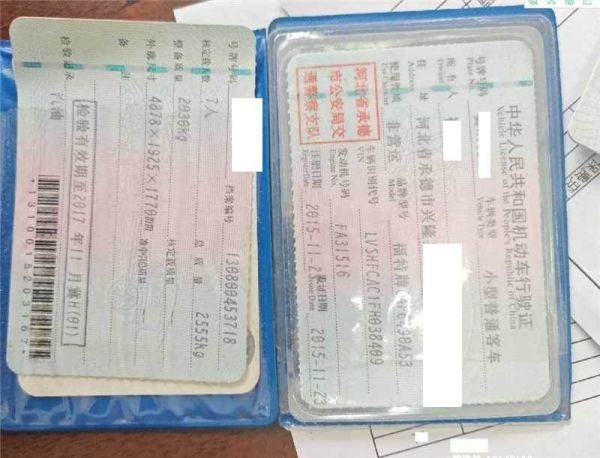 中华人民共和国机动车行驶证
Vehicle License of the People's Republic of China
号牌号码
Plate No.
车辆类型
Vehicle Type
小型普通客车
所有人
Owner
住 址
Address
河北省承德市兴隆
使用性质
Use Character
非营运
品牌型号
Model
福特牌
6490A53
河北省承德
市公安局交
通警察支队
车辆识别代号
VIN
LVSHFCAC1FH038409
发动机号码
Engine No.
FA31516
注册日期
Register Date
2015-11-23
发证日期
Issue Date
2015-11-23
号牌号码
档案编号
130800453718
核定载人数
7人
总 质 量
2555kg
整备质量
2030kg
核定载质量
外廓尺寸
4878×1925×1770mm
准牵引总质量
备 注
检验记录
检验有效期至2017年11月冀H(01)
汽油
*1310015203167*